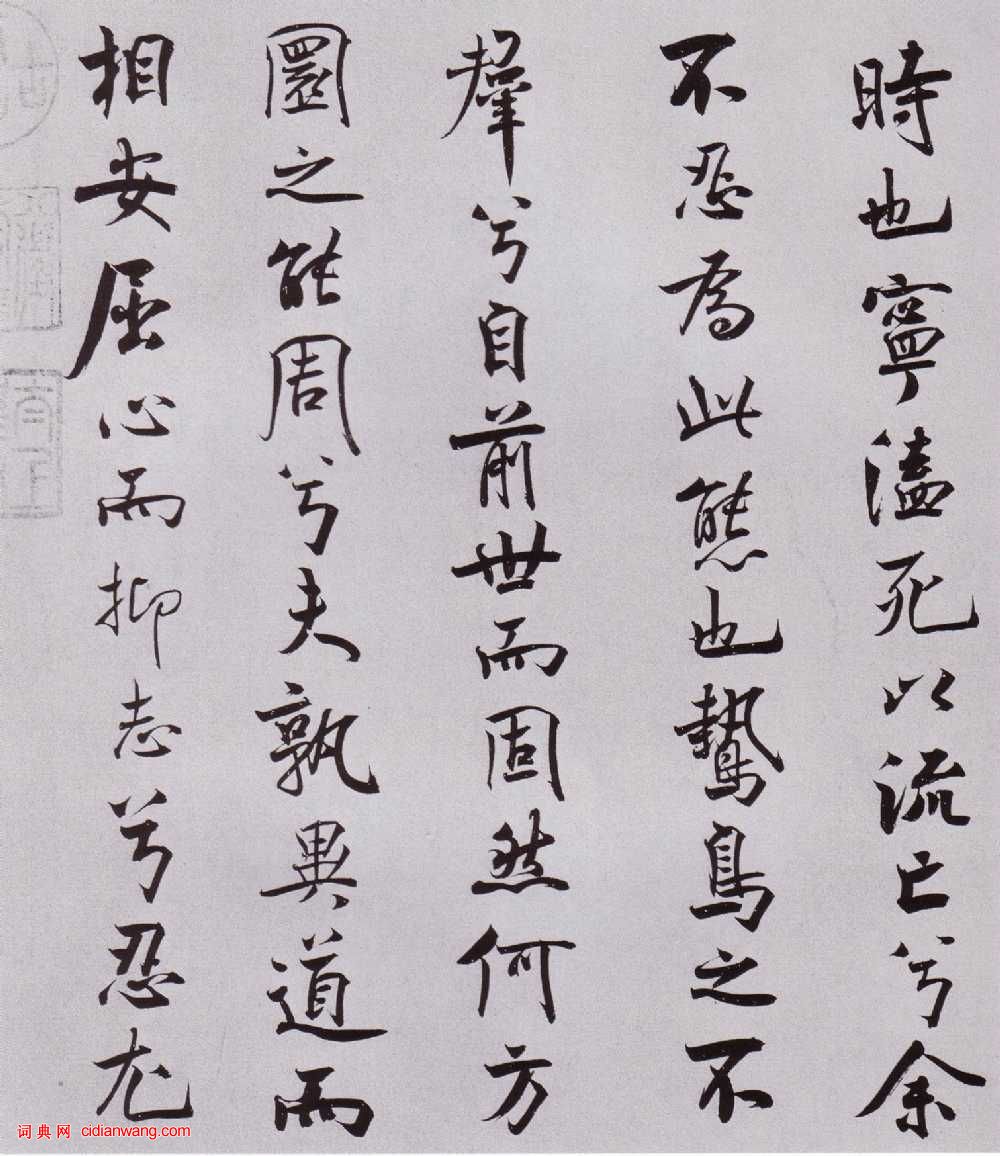 時也寧溘死以流亡兮余
不忍為此態也鷙鳥之不
羣兮自前世而固然何方
圜之能周兮夫孰異道而
相安屈心而抑志兮忍尤
词典网 cidianwang.com